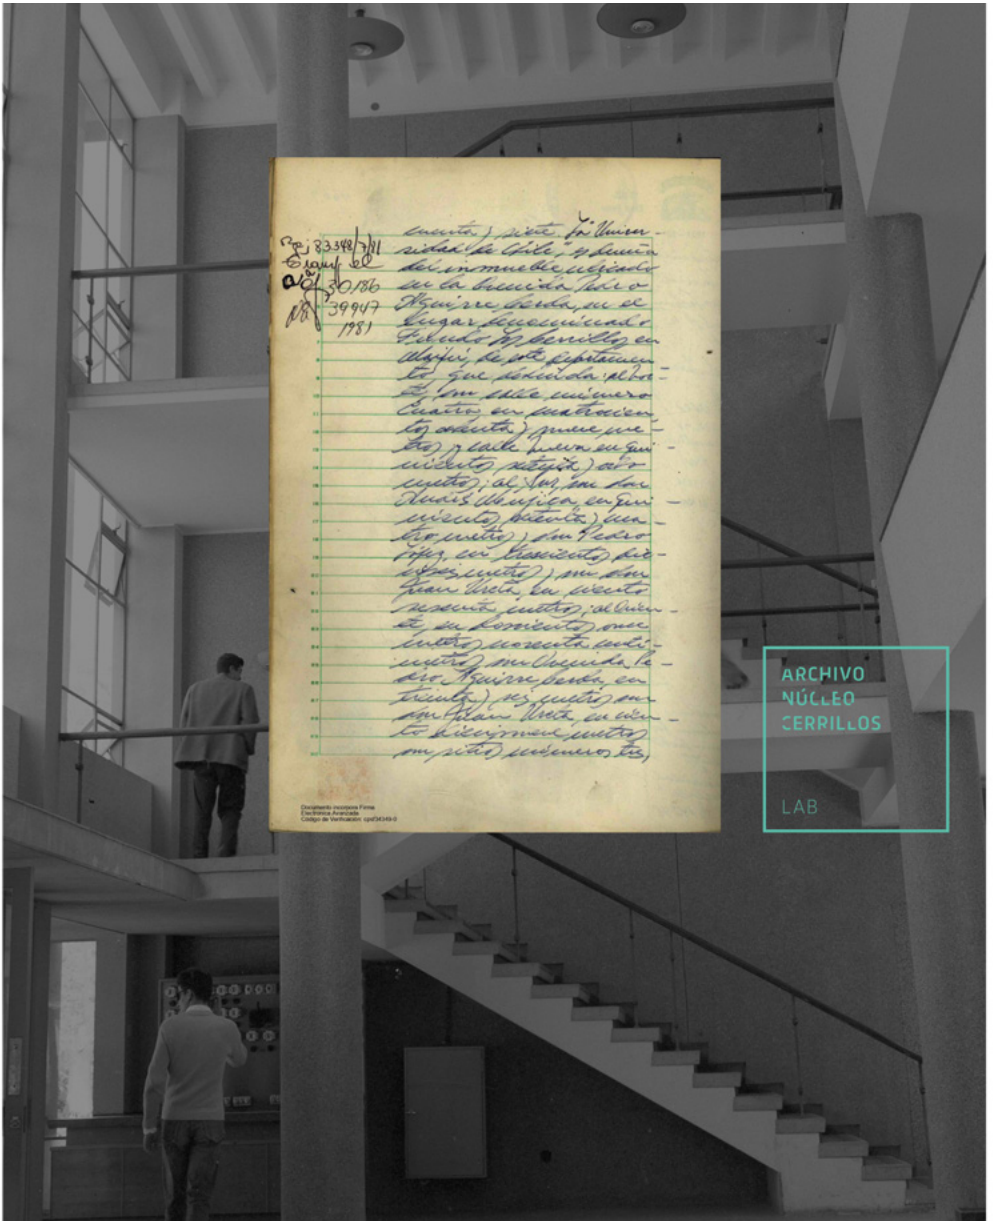 Rej 83348/7/81
30/86
39947
1981
cuenta y siete La "Univer-
sidad de Chile," es dueña
del inmueble ubicado
en la Avenida Pedro
Aguirre Cerda, en el
lugar denominado
Fundo Los Cerrillos en
Maipú, de este departamen
to que deslinda: al Nor-
te, con calle número
Cuatro en cuatrocien
tos ochenta y nueve me-
tros y calle Nueva en qui-
nientos setenta y ocho
metros; al Sur, con don
en qui-
nientos setenta y cua-
tro metros y don Pedro
López, en trescientos die-
ciseis metros y con don
Juan Ureta, en ciento
sesenta metros; al Orien-
te, en doscientos once
metros noventa centí-
metros con Avenida Pe-
dro Aguirre Cerda, en
treinta y seis metros con
don Juan Ureta, en cien-
to diecinueve metros
con sitios números tres,
Documento incorpora Firma
Electrónica Avanzada
Código de Verificación:
ARCHIVO
NÚCLEO
CERRILLOS
LAB